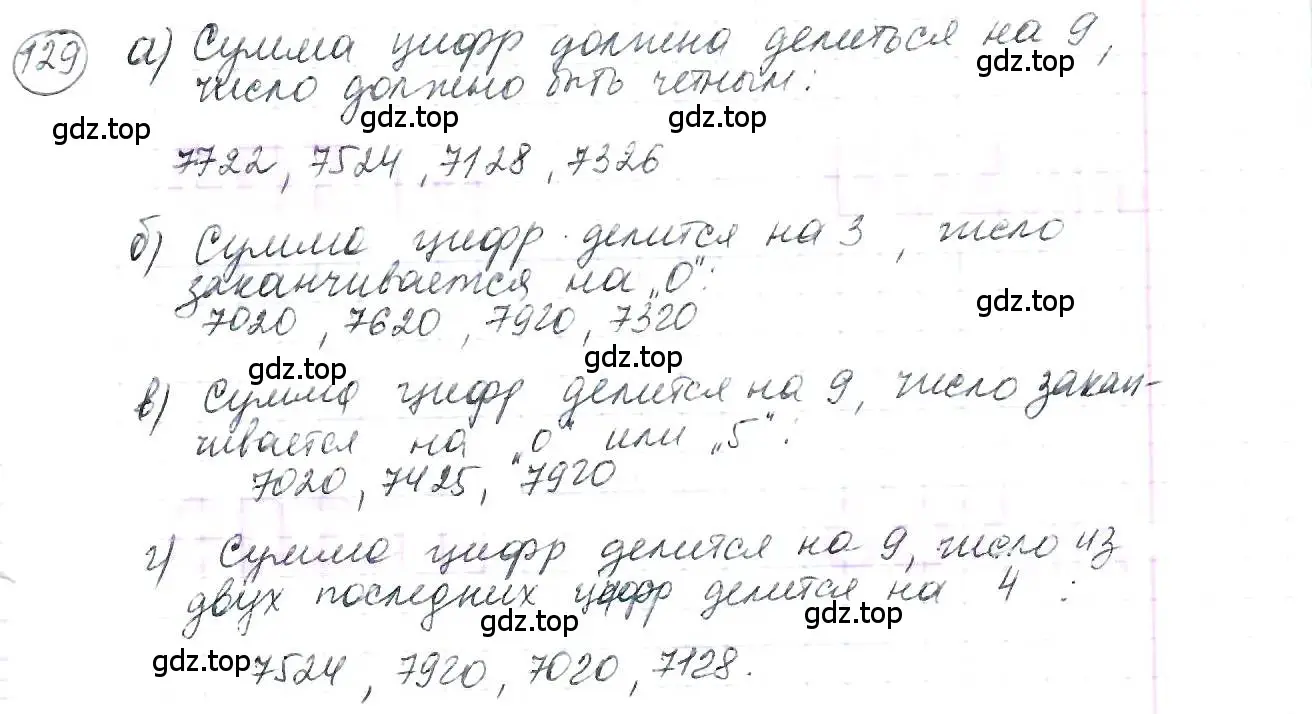 129 а) Сумма цифр должна делиться на 9,
gdz.top
число должно быть четным:
gdz.top gdz.top gdz.top
7722, 7524, 7128, 7326
б) Сумма цифр делится на 3, число
заканчивается на „0“:
gdz.top
7020, 7620, 7920, 7320
gdz.top gdz.top
в) Сумма цифр делится на 9, число закан-
чивается на „0“ или „5“:
7020, 7425, 7920
г) Сумма цифр делится на 9, число из
двух последних цифр делится на 4:
gdz.top gdz.top
gdz.top 7524, 7920, 7020, 7128.